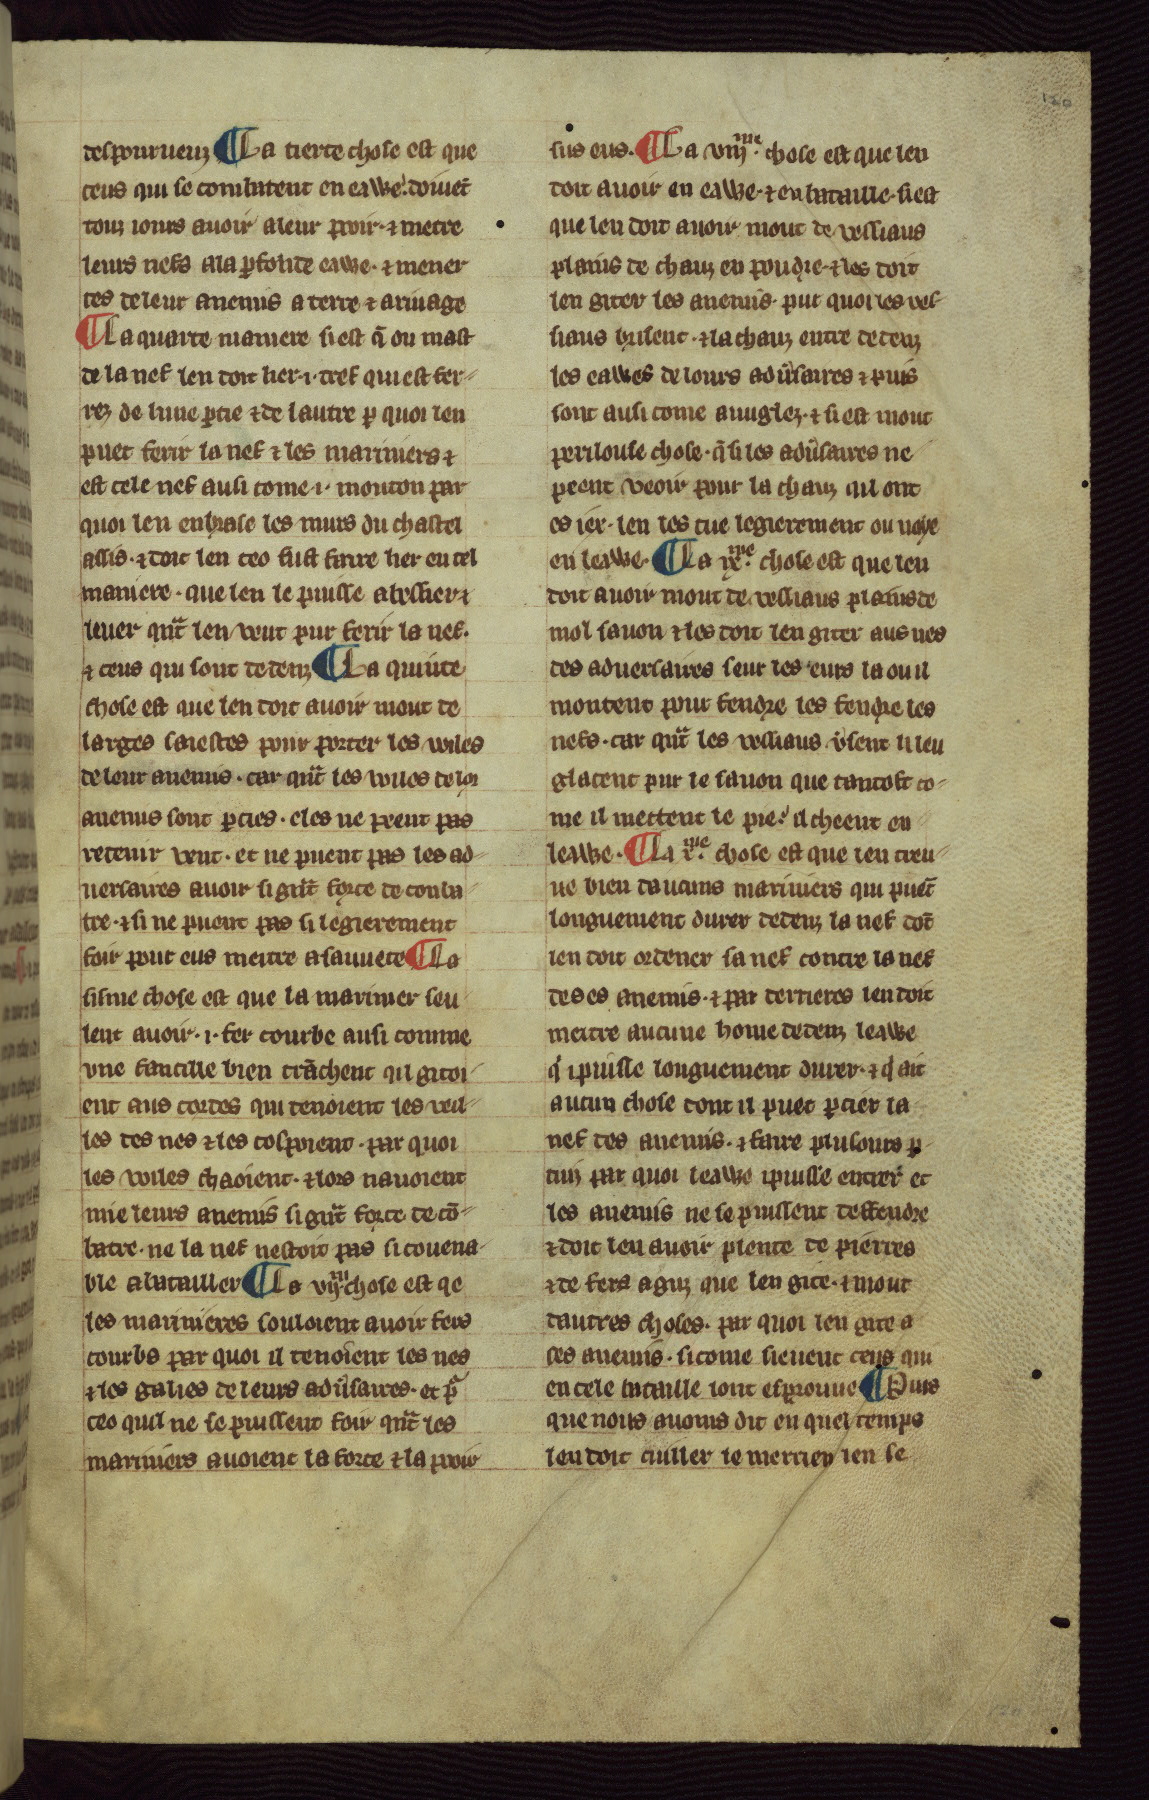 despourueuz ¶ La tierce chose est que
ceus qui se combatent en eawe. doiuēt
touz iours auoir a leur pooir · ⁊ metre
leurs nefs a la ꝑfonde eawe · ⁊ mener
ces de leur anemis a terre ⁊ a riuage
¶ La quarte maniere si est q̄ ou mast
de la nef len doit lier · i · tref qui est fer-
rez de lune ꝑtie ⁊ de lautre ꝑ quoi len
puet ferir la nef ⁊ les mariniers ⁊
est cele nef ausi come · i · mouton par
quoi len enbrase les murs du chastel
assis · ⁊ doit len ceo fust faire lier en tel
maniere · que len le puisse abessier ⁊
leuer qn̄t len veut pur ferir la nef ·
⁊ ceus qui sont dedenz ¶ La quinte
chose est que len doit auoir mout de
larges saiestes pour porter les voiles
de leur anemis · car qn̄t les voiles de lor
anemis sont ꝑcies · eles ne peent pas
retenir vent · et ne puent pas les ad-
uersaires auoir si gn̄t force de conba-
tre · ⁊ si ne puent pas si legierement
foir pour eus mettre a sauuete ¶ La
sisme chose est que la marinier seu-
lent auoir · i · fer courbe ausi comme
vne faucille bien trāchent qil gitoi-
ent aus cordes qui tenoient les veil-
les des nes ⁊ les cospoient · par quoi
les voiles chaoient · ⁊ lors nauoient
mie leurs anemis si gn̄t force de cō-
batre · ne la nef nestoit pas si couena-
ble a batailler ¶ La vij · chose est qe
les marinieres souloient auoir fers
courbs par quoi il tenoient les nes
⁊ les galies de leurs adūsaires · et pͬ
ceo quil ne se puissent foir qn̄t les
mariniers auoient la force ⁊ la pooir
sus eus · ¶ La viijᵐᵉ · chose est que len
doit auoir en eawe · ⁊ en bataille · si est
que len doit auoir mout de vessiaus
plains de chauz en poudre · ⁊ les doit
len giter les anemis · pur quoi les ves-
siaus brisent · ⁊ la chauz entre dedenz
les eawes de lours adūsaires ⁊ puis
sont ausi come auuglez · ⁊ si est mout
perilouse chose · q̄ si les adūsaires ne
peent veoir pour la chauz qil ont
es iex · len les tue legierement ou noye
en leawe · ¶ La ixᵐᵉ · chose est que len
doit auoir mout de vessiaus plains de
mol sauon ⁊ les doit len giter aus nes
des aduersaires seur les eurs la ou il
montent pour fendre les fendre les
nefs · car qn̄t les vessiaus brisent li leu
glacent pur le sauon que tantost co-
me il mettent le pie · il cheent en
leawe · ¶ La xᵐᵉ · chose est que len treu-
ue bien daucuns mariniers qui puēt
longuement durer dedenz la nef dōt
len doit ordener sa nef contre la nef
de ses anemis · ⁊ par derrieres len doit
mettre aucune home dedenz leawe
q̇ i puisse longuement durer · ⁊ q̇ ait
aucun chose dont il puet ꝑcier la
nef des anemis · ⁊ faire plusours ꝑ-
tuz par quoi leawe i puisse entrer et
les anemis ne se puissent deffendre
⁊ doit len auoir plente de pierres
⁊ de fers aguz que len gite · ⁊ mout
dautres choses · par quoi len gite a
ses anemis · si come sieuent ceus qui
en cele bataille sont esprouue ¶ Puis
que nous auoms dit en quel temps
len doit ciuller le merrien len se